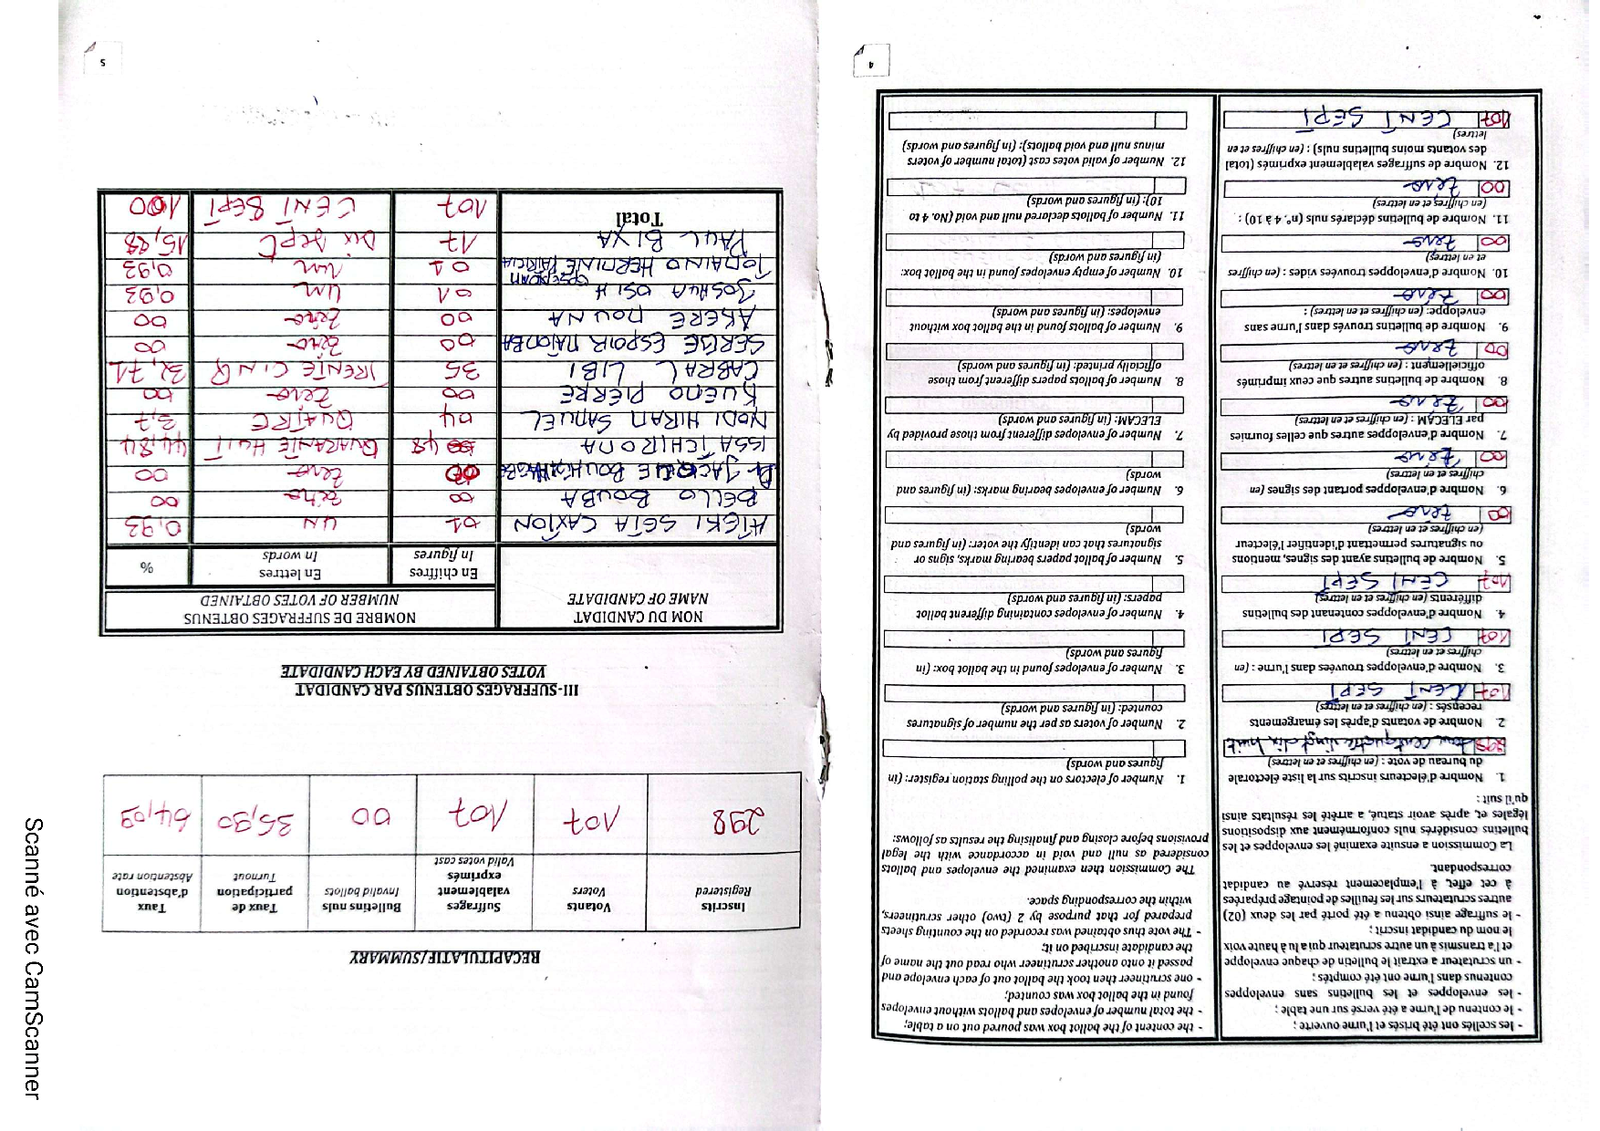 4
- les scellés ont été brisés et l'urne ouverte ;
- le contenu de l'urne a été versé sur une table ;
- les enveloppes et les bulletins sans enveloppes
contenus dans l'urne ont été comptés ;
- un scrutateur a extrait le bulletin de chaque enveloppe
et l'a transmis à un autre scrutateur qui a lu à haute voix
le nom du candidat inscrit ;
- le suffrage ainsi obtenu a été porté par les deux (02)
autres scrutateurs sur les feuilles de pointage préparées
à cet effet, à l'emplacement réservé au candidat
correspondant.
La Commission a ensuite examiné les enveloppes et les
bulletins considérés nuls conformément aux dispositions
légales et, après avoir statué, a arrêté les résultats ainsi
qu'il suit :
1. Nombre d'électeurs inscrits sur la liste électorale
du bureau de vote : (en chiffres et en lettres)
298 deux cent quatre vingt dix huit
2. Nombre de votants d'après les émargements
recensés : (en chiffres et en lettres)
107 CENT SEPT
3. Nombre d'enveloppes trouvées dans l'urne : (en
chiffres et en lettres)
107 CENT SEPT
4. Nombre d'enveloppes contenant des bulletins
différents (en chiffres et en lettres)
107 CENT SEPT
5. Nombre de bulletins ayant des signes, mentions
ou signatures permettant d'identifier l'électeur
(en chiffres et en lettres)
00 Zéro
6. Nombre d'enveloppes portant des signes (en
chiffres et en lettres)
00 Zéro
7. Nombre d'enveloppes autres que celles fournies
par ELECAM : (en chiffres et en lettres)
00 Zéro
8. Nombre de bulletins autres que ceux imprimés
officiellement : (en chiffres et en lettres)
00 Zéro
9. Nombre de bulletins trouvés dans l'urne sans
enveloppe: (en chiffres et en lettres) :
00 Zéro
10. Nombre d'enveloppes trouvées vides : (en chiffres
et en lettres)
00 Zéro
11. Nombre de bulletins déclarés nuls (n°. 4 à 10) :
(en chiffres et en lettres)
00 Zéro
12. Nombre de suffrages valablement exprimés (total
des votants moins bulletins nuls) : (en chiffres et en
lettres)
107 CENT SEPT
- the content of the ballot box was poured out on a table;
- the total number of envelopes and ballots without envelopes
found in the ballot box was counted;
- one scrutineer then took the ballot out of each envelope and
passed it onto another scrutineer who read out the name of
the candidate inscribed on it;
- The vote thus obtained was recorded on the counting sheets
prepared for that purpose by 2 (two) other scrutineers,
within the corresponding space.
The Commission then examined the envelopes and ballots
considered as null and void in accordance with the legal
provisions before closing and finalising the results as follows:
1. Number of electors on the polling station register: (in
figures and words)
2. Number of voters as per the number of signatures
counted: (in figures and words)
3. Number of envelopes found in the ballot box: (in
figures and words)
4. Number of envelopes containing different ballot
papers: (in figures and words)
5. Number of ballot papers bearing marks, signs or
signatures that can identify the voter: (in figures and
words)
6. Number of envelopes bearing marks: (in figures and
words)
7. Number of envelopes different from those provided by
ELECAM: (in figures and words)
8. Number of ballots papers different from those
officially printed: (in figures and words)
9. Number of ballots found in the ballot box without
envelopes: (in figures and words)
10. Number of empty envelopes found in the ballot box:
(in figures and words)
11. Number of ballots declared null and void (No. 4 to
10): (in figures and words)
12. Number of valid votes cast (total number of voters
minus null and void ballots): (in figures and words)
5
RECAPITULATIF/SUMMARY
Inscrits Registered | Votants Voters | Suffrages valablement exprimés Valid votes cast | Bulletins nuls Invalid ballots | Taux de participation Turnout | Taux d'abstention Abstention rate
298 | 107 | 107 | 00 | 35,90 | 64,09
III-SUFFRAGES OBTENUS PAR CANDIDAT
VOTES OBTAINED BY EACH CANDIDATE
NOM DU CANDIDAT NAME OF CANDIDATE | NOMBRE DE SUFFRAGES OBTENUS NUMBER OF VOTES OBTAINED
En chiffres In figures | En lettres In words | %
ATEKI SETA CAXTON 01 UN 0,93
BELLO BOUBA 00 zéro 00
Dr JACQUES BOUHGHA HAGBE 00 zéro 00
ISSA TCHIROMA 48 QUARANTE HUIT 44,84
NODI HIRAM SAMUEL 04 QUATRE 3,7
KUEMO PIERRE 00 Zéro 00
CABRAL LIBI 35 TRENTE CINQ 32,71
SERGE ESPOIR MATOMBA 00 zéro 00
AKERE MOUNA 00 zéro 00
JOSHUA OSIH 01 UN 0,93
TOMAINO HERMINE PATRICIA 01 un 0,93
PAUL BIYA 17 Dix Sept 15,88
Total 107 CENT SEPT 100
Scanné avec CamScanner